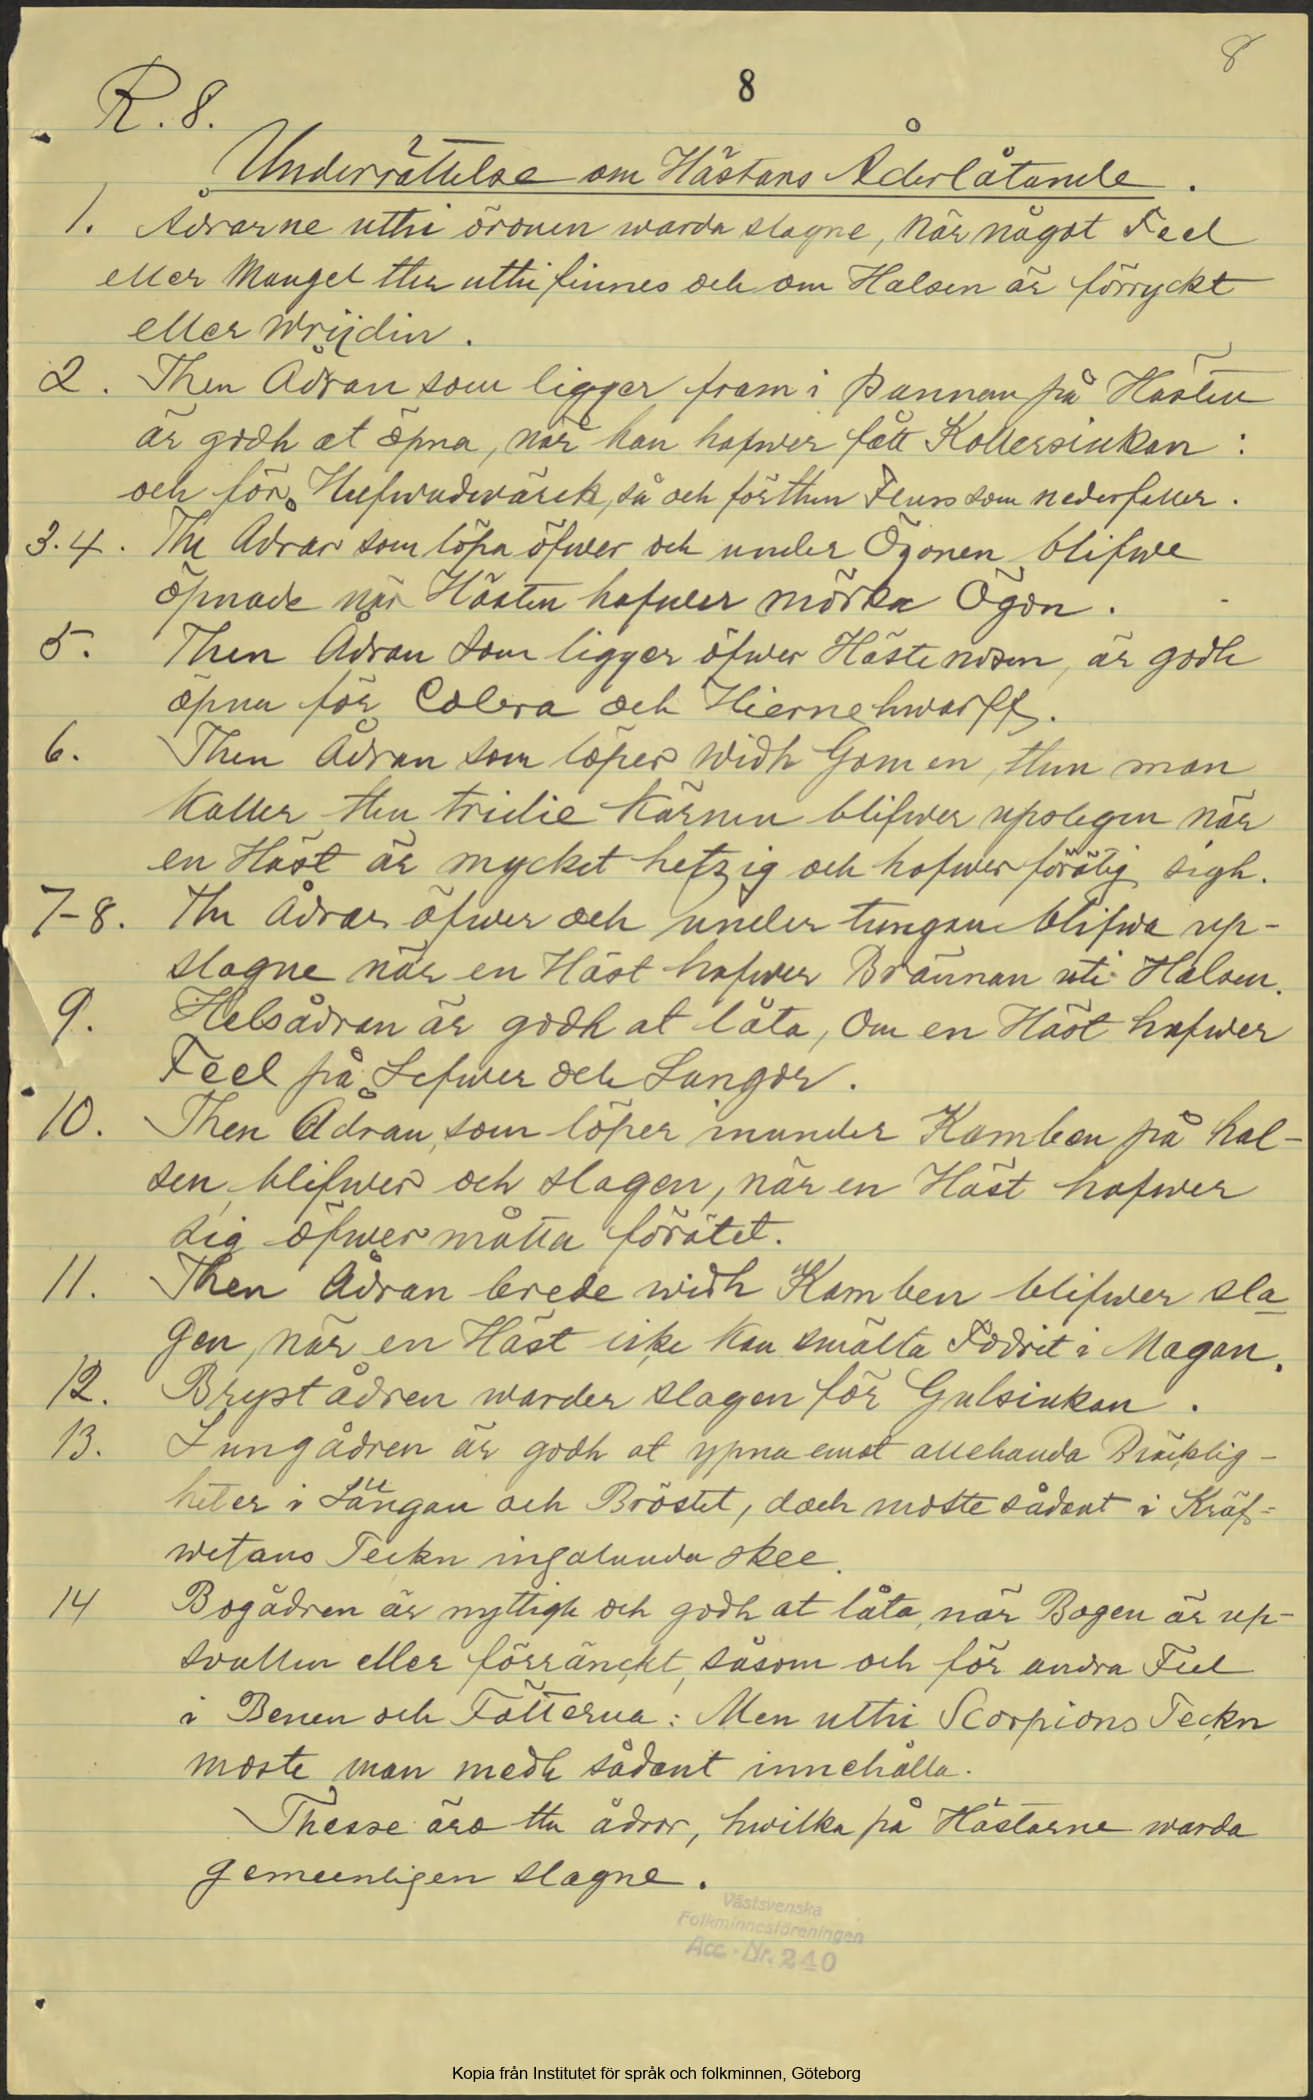 8
8
R. 8.
Underrättelse om Hästans Åderlåtande.
1. Ådrarne uthi öronen warda slagne, När något Feel
eller Mangel ther uthi finnes och om Halsen är förryckt
eller Wrijdin.
2. Then Ådran som ligger fram i Pannan på Hästen
är godh at öpna, när han hafwer fått Kollersiukan:
och för Hufwudwärck, så och för then Fluss som nederfaller.
3.4. The Ådrar som löpa öfwer och under Ögonen blifwe
öpnade när Hästen hafwer mörka Ögon.
5. Then Ådran som ligger öfwer Hästenosen, är godh
öpna för Colera och Hiernehwarff.
6. Then Ådran som löper widh Gomen, then man
kaller then tridie Kärnen blifwer upslegen när
en Häst är mycket hetzig och hafwer förätij sigh.
7-8. The Ådrar öfwer och under tungan blifwa up-
slagne när en Häst hafwer Brännan uti Halsen.
9. Helsådran är godh at låta, Om en Häst hafwer
Feel på Lefwer och Lungor.
10. Then Ådran, som löper inunder Kamben på hal-
sen, blifwer och slagen, när en Häst hafwer
sig öfwer måtta förätet.
11. Then Ådran brede widh Kamben blifwer sla
gen, när en Häst icke kan smälta Fodrit i Magan.
12. Brystådren warder slagen för Gulsiukan.
13. Lungådren är godh at ypna emot allehanda Bräcklig-
heter i Lungan och Bröstet, doch moste sådant i Kräf=
wetans Teckn ingalunda skee.
14 Bogådren är nyttigh och godh at låta, när Bogen är up-
svullen eller förränckt, såsom och för andra Feel
i Benen och Fötterna: Men uthi Scorpions Teckn
moste man medh sådant innehålla.
Thesse äro the ådror, hwilka på Hästarne warda
gemeenligen slagne.
Västsvenska
Folkminnesföreningen
Acc. Nr. 240
Kopia från Institutet för språk och folkminnen, Göteborg